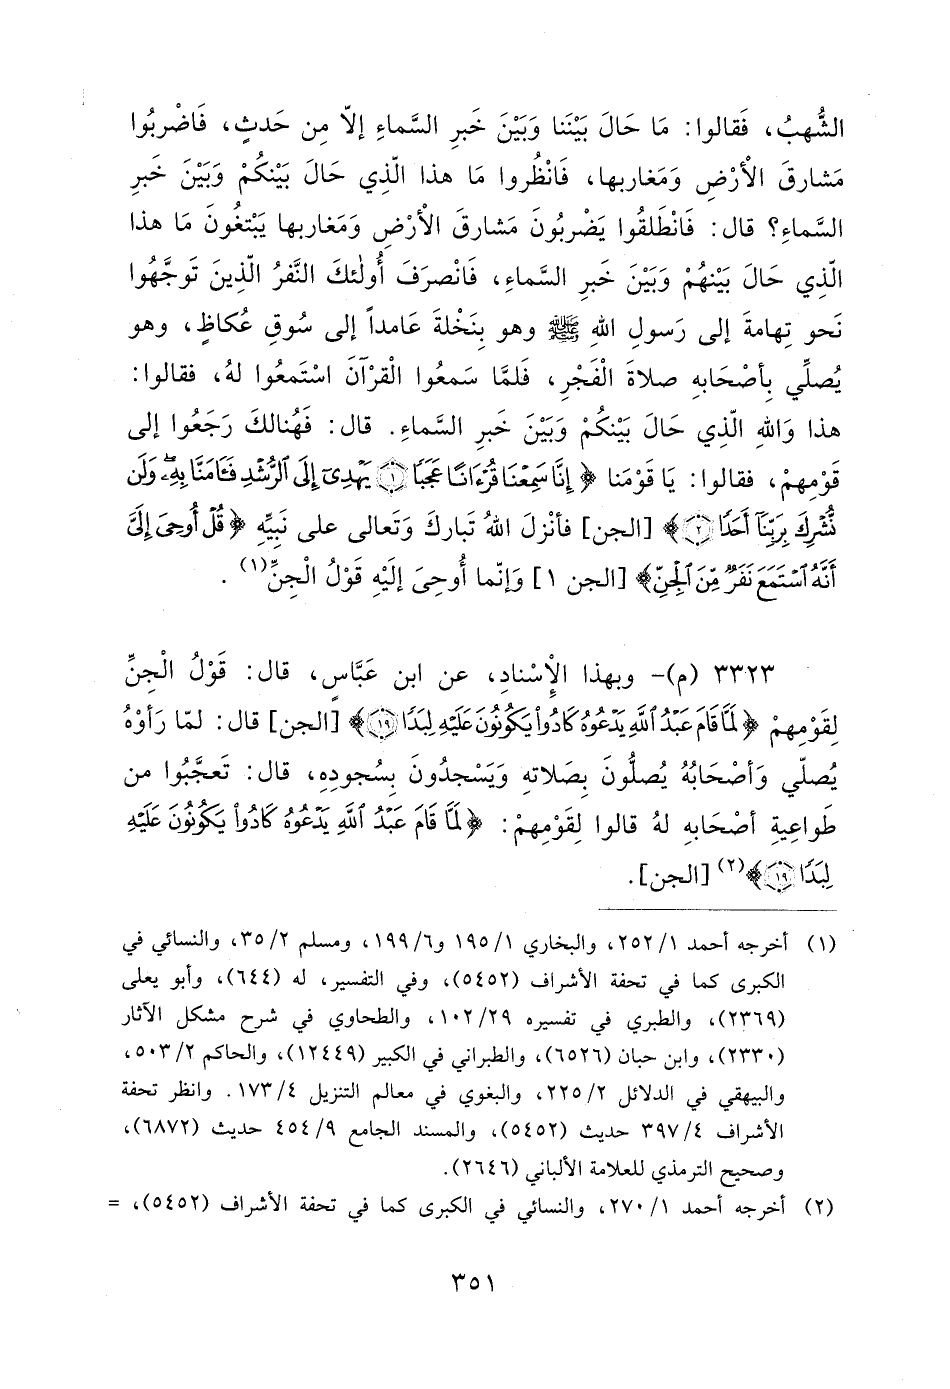 الشُّهبُ، فَقالوا: مَا حَالَ بَيْنَنا وَبَيْنَ خَبرِ السَّماءِ إلاّ مِن حَدثٍ، فَاضْرِبُوا
مَشارقَ الْأَرْضِ وَمَغاربها، فَانْظُروا مَا هذا الّذِي حَالَ بَيْنكُمْ وَبَيْنَ خَبرِ
السَّماءِ؟ قال: فَانْطَلقُوا يَضْربُونَ مَشارقَ الْأَرْضِ وَمَغاربها يَبْتغُونَ مَا هذا
الّذِي حَالَ بَيْنهُمْ وَبَيْنَ خَبرِ السَّماءِ، فَانْصرَفَ أُولٰئكَ النَّفرُ الّذِينَ تَوجَّهُوا
نَحو تِهامةَ إلى رَسولِ اللهِ ﷺ وهو بِنَخْلةَ عَامداً إلى سُوقِ عُكاظٍ، وهو
يُصلِّي بِأصْحَابهِ صلاةَ الْفَجْرِ، فَلمَّا سَمعُوا الْقرْآنَ اسْتَمعُوا لهُ، فقالوا:
هذا وَاللهِ الّذِي حَالَ بَيْنكُمْ وَبَيْنَ خَبرِ السَّماءِ. قال: فَهُنالكَ رَجَعُوا إلى
قَوْمِهمْ، فقالوا: يَا قَوْمَنا ﴿إِنَّا سَمِعْنَا قُرْءَانًا عَجَبًا ١ يَهْدِىٓ إِلَى ٱلرُّشْدِ فَـَٔامَنَّا بِهِۦ وَلَن
نُّشْرِكَ بِرَبِّنَآ أَحَدًا ٢﴾ [الجن] فأنْزلَ اللهُ تَباركَ وَتَعالى على نَبيِّهِ ﴿قُلْ أُوحِىَ إِلَىَّ
أَنَّهُ ٱسْتَمَعَ نَفَرٌ مِّنَ ٱلْجِنِّ﴾ [الجن ١] وَإنّما أُوحِيَ إلَيْهِ قَوْلُ الْجِنِّ(١) .
٣٣٢٣ (م)- وبهذا الإِسْنادِ، عن ابن عَبَّاسٍ، قال: قَوْلُ الْجنِّ
لِقَوْمِهمْ ﴿لَمَّا قَامَ عَبْدُ ٱللَّهِ يَدْعُوهُ كَادُوا۟ يَكُونُونَ عَلَيْهِ لِبَدًا ١٩﴾ [الجن] قال: لمّا رَأوْهُ
يُصلّي وَأصْحَابُهُ يُصلُّونَ بِصَلاتهِ وَيَسْجدُونَ بِسُجودِهِ، قال: تَعجَّبُوا من
طَواعيةِ أصْحَابهِ لهُ قالوا لِقَوْمِهمْ: ﴿لَمَّا قَامَ عَبْدُ ٱللَّهِ يَدْعُوهُ كَادُوا۟ يَكُونُونَ عَلَيْهِ
لِبَدًا ١٩﴾(٢) [الجن].
(١) أخرجه أحمد ٢٥٢/١، والبخاري ١٩٥/١ و١٩٩/٦، ومسلم ٣٥/٢، والنسائي في
الكبرى كما في تحفة الأشراف (٥٤٥٢)، وفي التفسير، له (٦٤٤)، وأبو يعلى
(٢٣٦٩)، والطبري في تفسيره ١٠٢/٢٩، والطحاوي في شرح مشكل الآثار
(٢٣٣٠)، وابن حبان (٦٥٢٦)، والطبراني في الكبير (١٢٤٤٩)، والحاكم ٥٠٣/٢،
والبيهقي في الدلائل ٢٢٥/٢، والبغوي في معالم التنزيل ١٧٣/٤. وانظر تحفة
الأشراف ٣٩٧/٤ حديث (٥٤٥٢)، والمسند الجامع ٤٥٤/٩ حديث (٦٨٧٢)،
وصحيح الترمذي للعلامة الألباني (٢٦٤٦).
(٢) أخرجه أحمد ٢٧٠/١، والنسائي في الكبرى كما في تحفة الأشراف (٥٤٥٢)، =
٣٥١